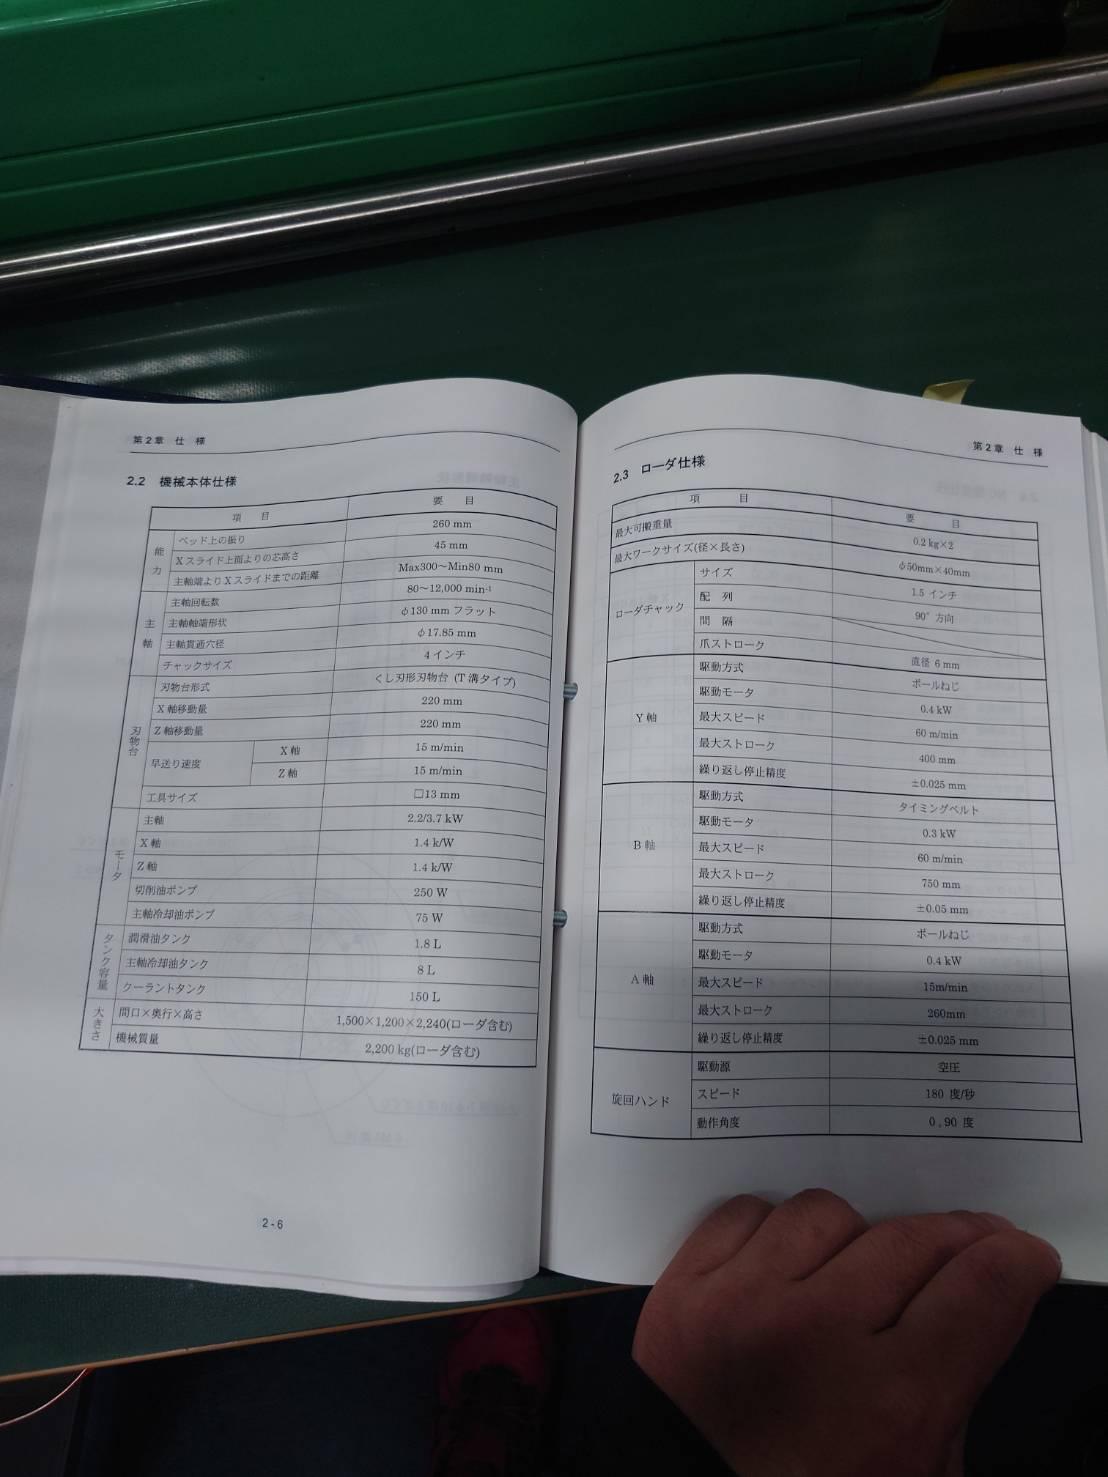 第2章 仕 様
2.2 機械本体仕様
項 目 要 目
能力 ベッド上の振り 260 mm
Xスライド上面よりの芯高さ 45 mm
主軸端よりXスライドまでの距離 Max300～Min80 mm
主軸 主軸回転数 80～12,000 min-1
主軸軸端形状 φ130 mm フラット
主軸貫通穴径 φ17.85 mm
チャックサイズ 4インチ
刃物台 刃物台形式 くし刃形刃物台 (T溝タイプ)
X軸移動量 220 mm
Z軸移動量 220 mm
早送り速度 X軸 15 m/min
Z軸 15 m/min
工具サイズ □13 mm
モータ 主軸 2.2/3.7 kW
X軸 1.4 k/W
Z軸 1.4 k/W
切削油ポンプ 250 W
主軸冷却油ポンプ 75 W
タンク容量 潤滑油タンク 1.8 L
主軸冷却油タンク 8 L
クーラントタンク 150 L
大きさ 間口×奥行×高さ 1,500×1,200×2,240(ローダ含む)
機械質量 2,200 kg(ローダ含む)
2-6
第2章 仕 様
2.3 ローダ仕様
項 目 要 目
最大可搬重量 0.2 kg×2
最大ワークサイズ(径×長さ) φ50mm×40mm
ローダチャック サイズ 1.5 インチ
配 列 90° 方向
間 隔
爪ストローク 直径 6 mm
Y軸 駆動方式 ボールねじ
駆動モータ 0.4 kW
最大スピード 60 m/min
最大ストローク 400 mm
繰り返し停止精度 ±0.025 mm
B軸 駆動方式 タイミングベルト
駆動モータ 0.3 kW
最大スピード 60 m/min
最大ストローク 750 mm
繰り返し停止精度 ±0.05 mm
A軸 駆動方式 ボールねじ
駆動モータ 0.4 kW
最大スピード 15m/min
最大ストローク 260mm
繰り返し停止精度 ±0.025 mm
旋回ハンド 駆動源 空圧
スピード 180 度/秒
動作角度 0 , 90 度